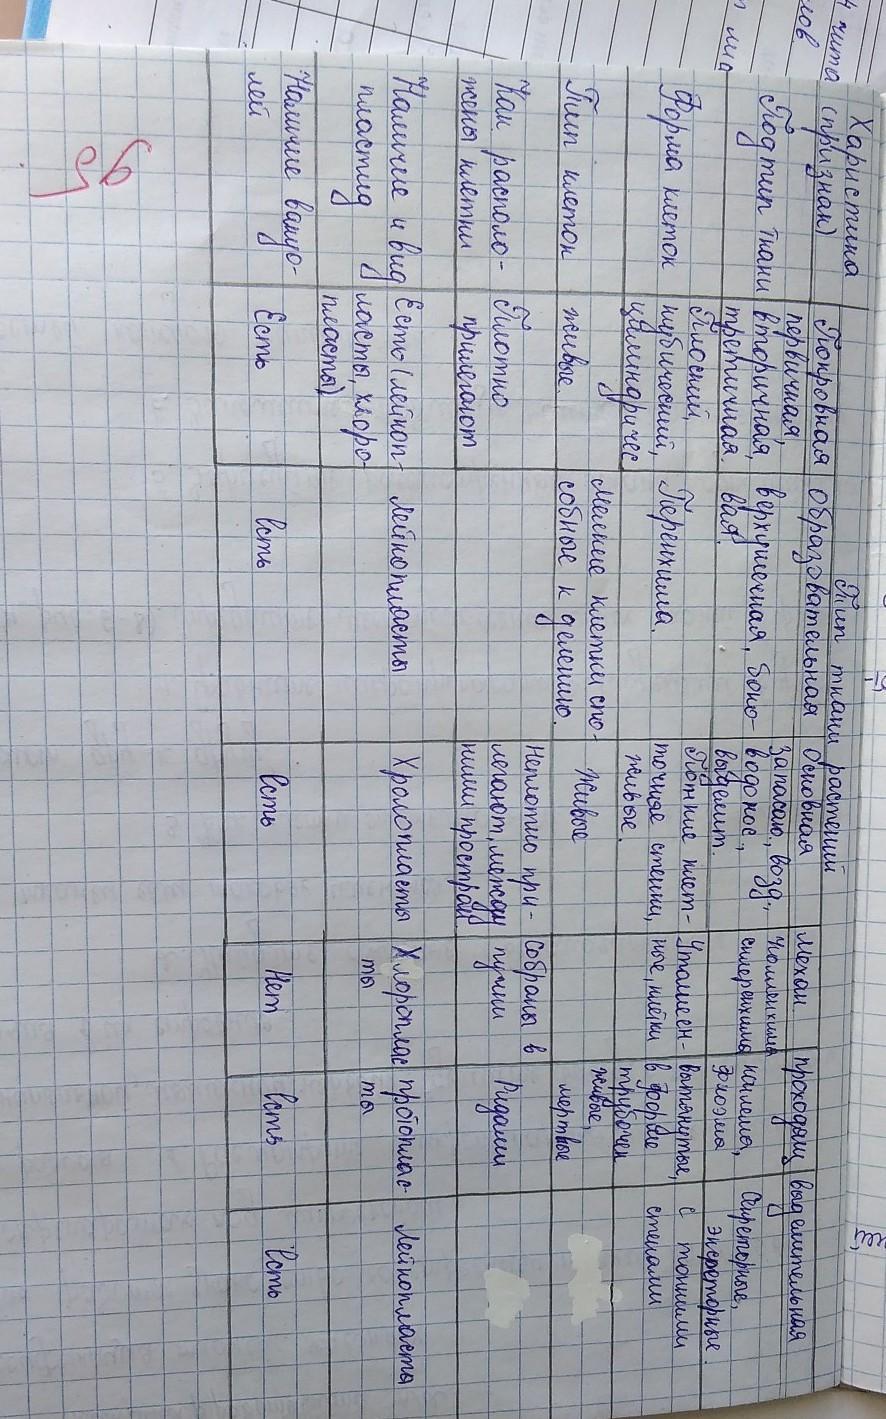 Тип ткани растений
Харистика
(признак)
Покровная
образовательная
основная
механ.
проходящ
выделительная
Подтип ткани
первичная,
вторичная,
третичная.
верхушечная, боко-
вая.
запасаю, возд.,
водонос.,
выделит.
колленхима
склеренхима
ксилема,
флоэма
Секреторные,
экскреторные.
Форма клеток
Плоский,
кубический,
цилиндричес
Перенхима.
Тонкие клет-
точные стенки,
живые.
Утолщен-
ные, клетки
вытянутые,
в форме
трубочек
с тонкими
стенами
Тип клеток
живые.
Мелкие клетки спо-
собные к делению.
живые
живые,
мертвые
Как располо-
жены клетки
Плотно
прилегают
неплотно при-
легают, между
ними простран.
Собраны в
пучки
Рядами
Наличие и вид
пластид
Есть (лейкоп-
ласты, хлоро-
пласты)
Лейкопласты
Хролопласты
Хлороплас
ты
протоплас-
ты
Лейкопласты
Наличие вакуо-
лей
Есть
Есть
Есть
Нет
Есть
Есть